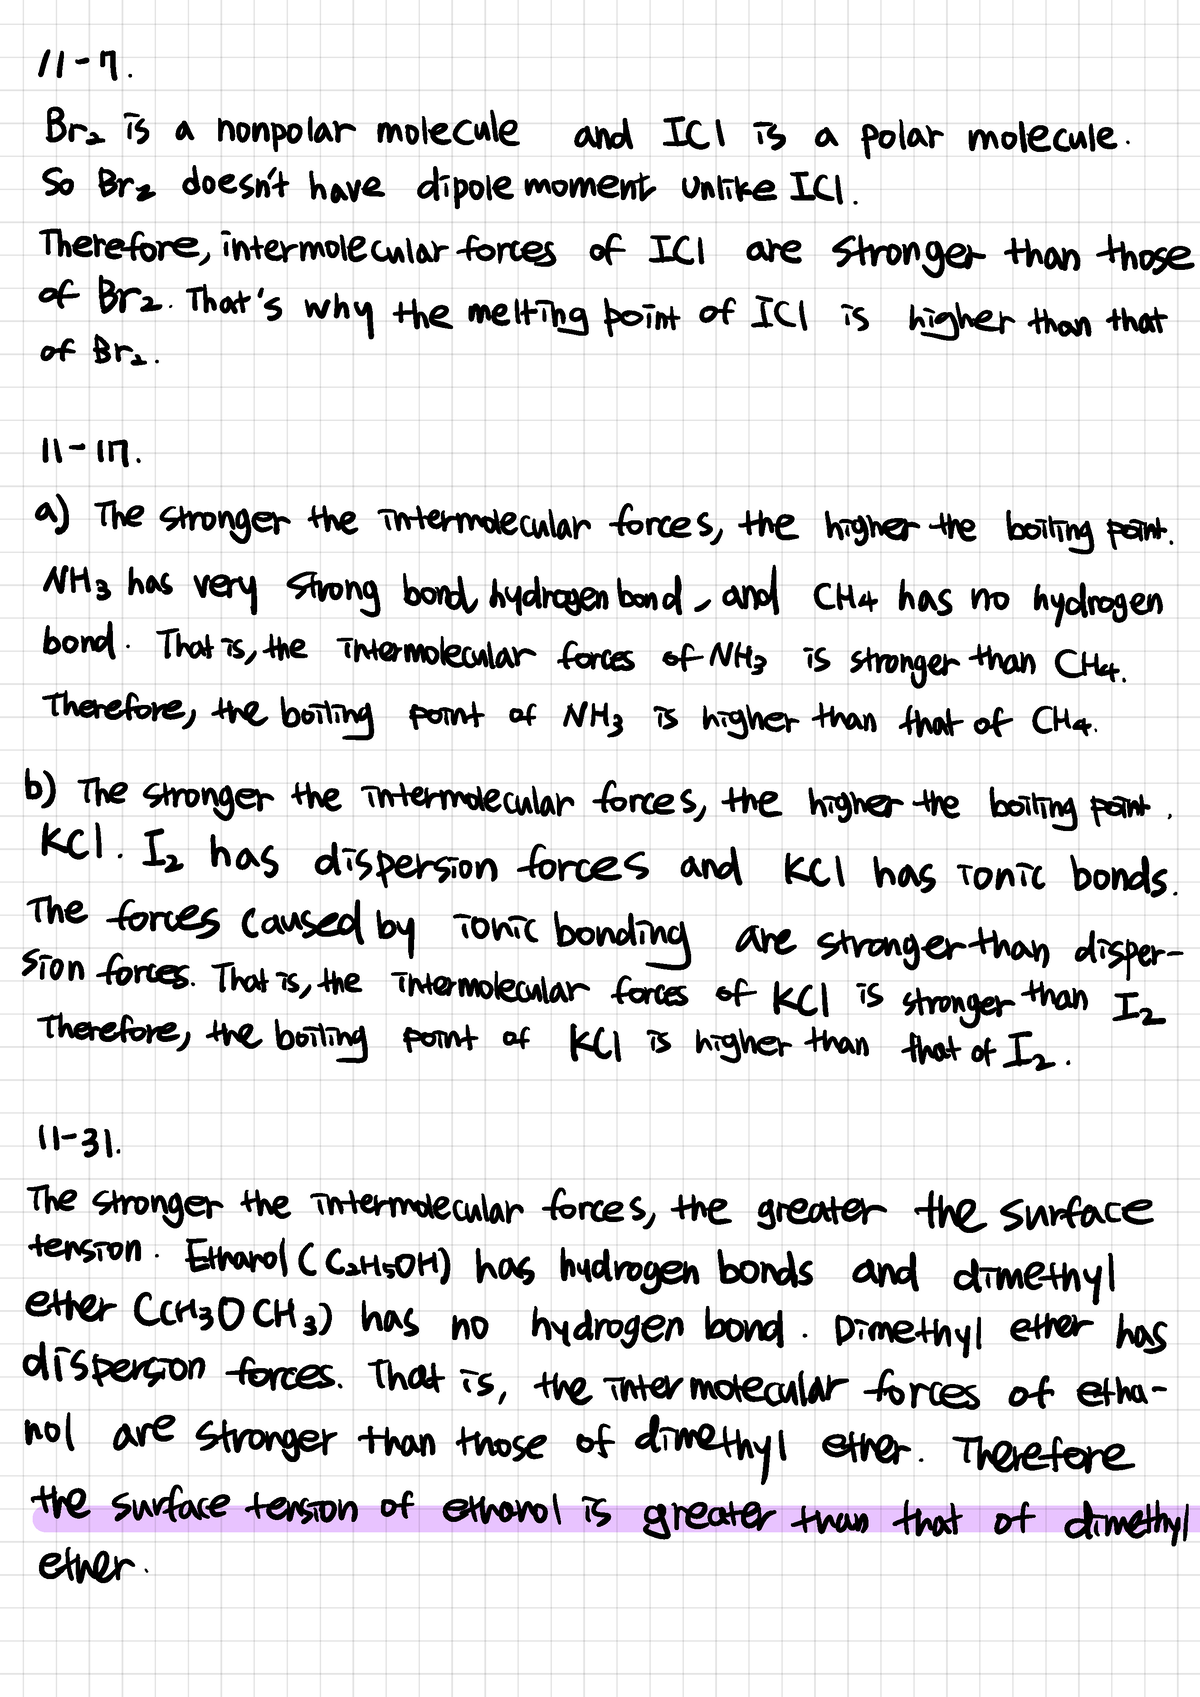 11-7.
Br₂ is a nonpolar molecule and ICl is a polar molecule.
So Br₂ doesn't have dipole moment unlike ICl.
Therefore, intermolecular forces of ICl are stronger than those
of Br₂. That's why the melting point of ICl is higher than that
of Br₂.
11-17.
a) The stronger the intermolecular forces, the higher the boiling point.
NH₃ has very strong bond, hydrogen bond, and CH₄ has no hydrogen
bond. That is, the intermolecular forces of NH₃ is stronger than CH₄.
Therefore, the boiling point of NH₃ is higher than that of CH₄.
b) The stronger the intermolecular forces, the higher the boiling point.
KCl. I₂ has dispersion forces and KCl has ionic bonds.
The forces caused by ionic bonding are stronger than disper-
sion forces. That is, the intermolecular forces of KCl is stronger than I₂
Therefore, the boiling point of KCl is higher than that of I₂.
11-31.
The stronger the intermolecular forces, the greater the surface
tension. Ethanol (C₂H₅OH) has hydrogen bonds and dimethyl
ether (CH₃OCH₃) has no hydrogen bond. Dimethyl ether has
dispersion forces. That is, the intermolecular forces of etha-
nol are stronger than those of dimethyl ether. Therefore
the surface tension of ethanol is greater than that of dimethyl
ether.